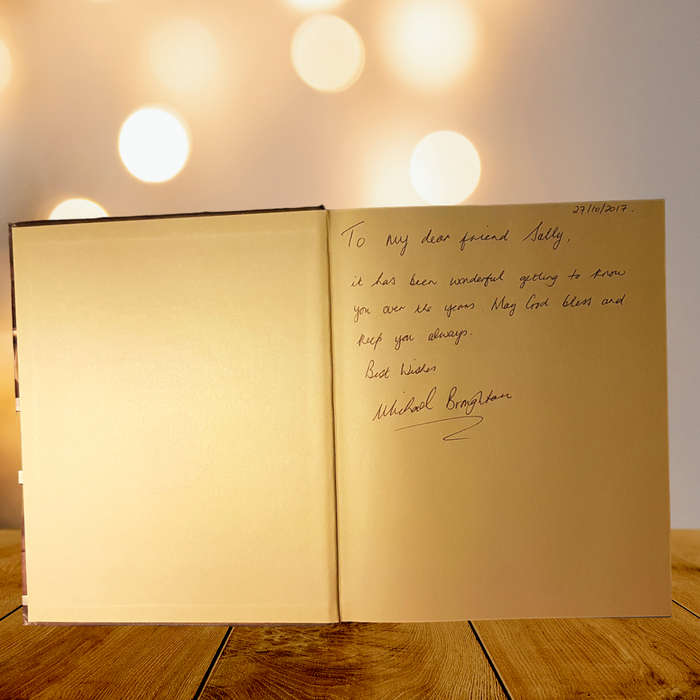 27/10/2017.
To my dear friend Sally,
it has been wonderful getting to know
you over the years. May God bless and
keep you always.
Best Wishes
Michael Broughton